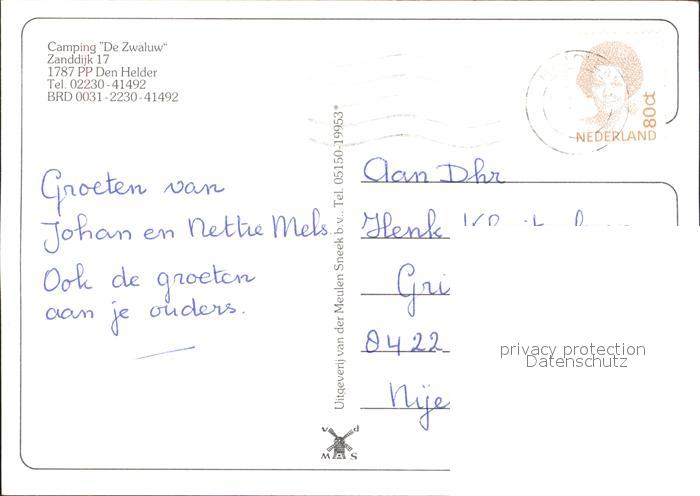 Camping "De Zwaluw"
Zanddijk 17
1787 PP Den Helder
Tel. 02230-41492
BRD 0031-2230-41492
NEDERLAND
80ct
Groeten van
Johan en Nettie Mels.
Ook de groeten
aan je ouders.
Uitgeverij van der Meulen Sneek b.v., Tel. 05150-19953*
Aan Dhr
Henk
Gri
8422
Nije
privacy protection
Datenschutz
v d
M S